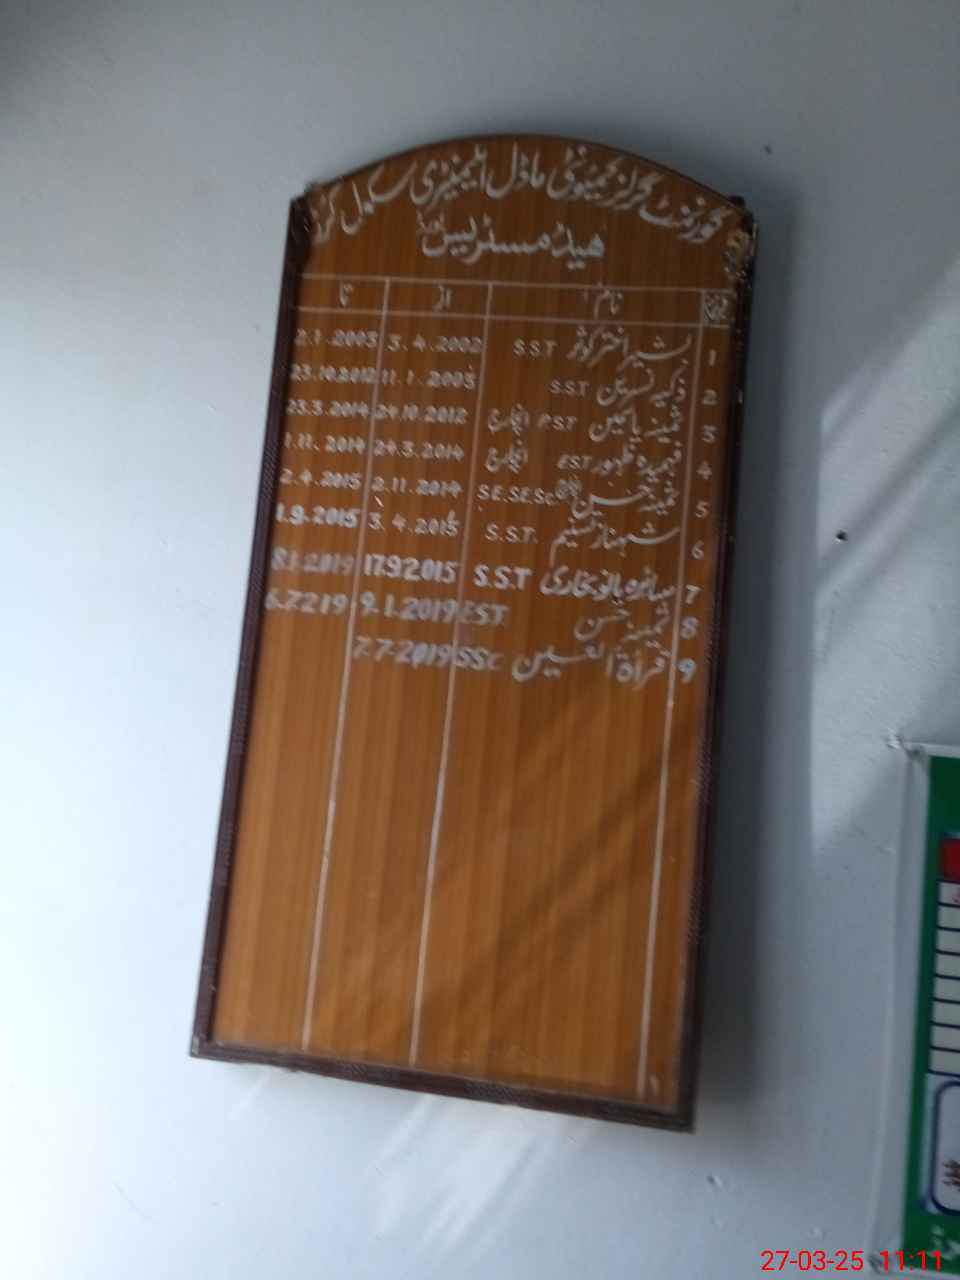 گورنمنٹ گرلز کمیونٹی ماڈل ایلیمنٹری سکول
ہیڈ مسٹریس
نام از تا
1 بشیر اختر کوثر S.S.T 3.4.2002 2.1.2003
2 ذکیہ نسرین S.S.T 11.1.2003 23.10.2012
3 ثمینہ یاسمین PST انچارج 24.10.2012 23.3.2014
4 فہمیدہ ظہور EST انچارج 24.3.2014 1.11.2014
5 حسین S.E.S.E.Sc 2.11.2014 2.4.2015
6 شہناز تسنیم S.S.T. 3.4.2015 1.9.2015
7 سائرہ بانو بخاری S.S.T 17.9.2015 8.1.2019
8 ثمینہ حسن EST 9.1.2019 6.7.219
9 قراۃ العین SSc 7.7.2019
27-03-25 11:11